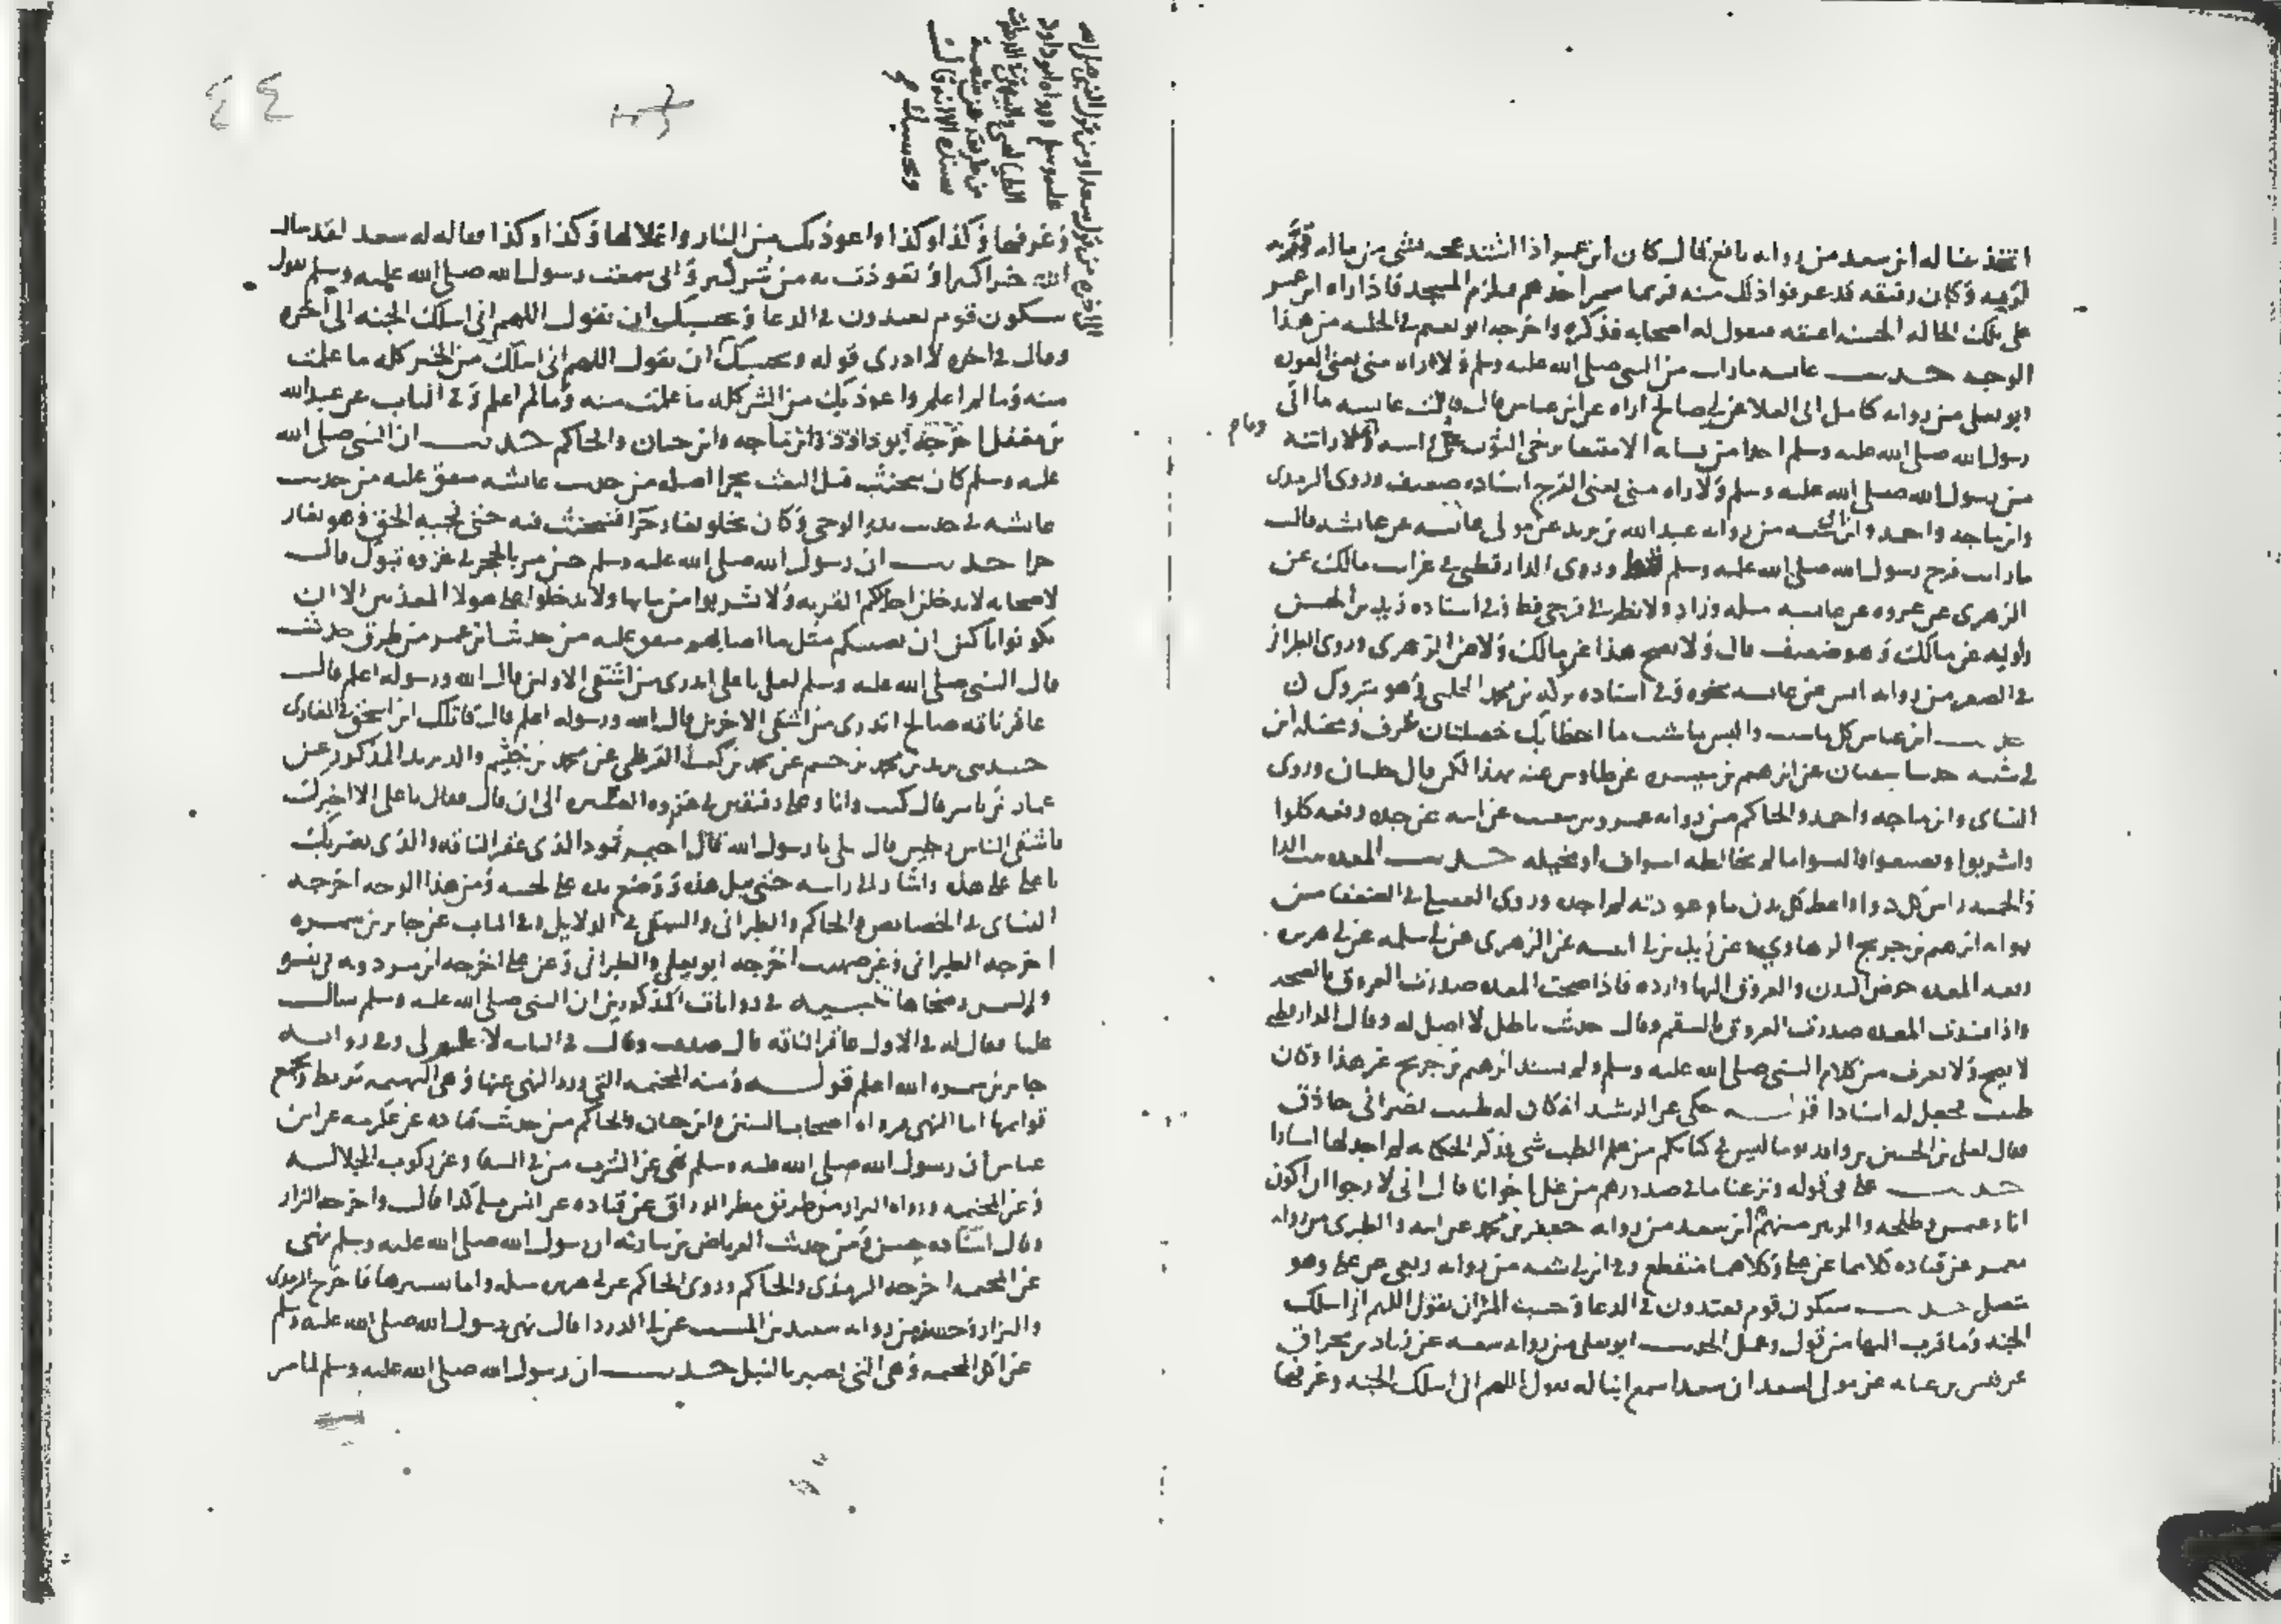 اتخذ عنا له ابن سعد من رواية نافع قال كان ابن عمر اذا اشتد عجبه بشي من ماله قربه
لربه وكان رقيقه قد عرفوا ذلك منه فربما شمر احدهم فلزم المسجد فاذا راه ابن عمر
على تلك الحاله الحسنه اعتقه فيقول له اصحابه فذكره واخرجه ابو نعيم في الحليه من هذا
الوجه حديث عايشه ما رايت من النبي صلى الله عليه وسلم ولا راه مني يعني العوره
ابو يعلى من رواية كامل ابي العلا عن ابي صالح اراه عن ابن عباس قال قالت عايشه ما اتى
رسول الله صلى الله عليه وسلم احدا من نسايه الا متقنعا يرخي الثوب على راسه وما رايته
من رسول الله صلى الله عليه وسلم ولا راه مني يعني الفرج اسناده ضعيف وروى الترمذي
وابن ماجه واحمد وابن ابي شيبه من رواية عبد الله بن يزيد عن مولى عايشه عن عايشه قالت
ما رايت فرج رسول الله صلى الله عليه وسلم قط وروى الدارقطني في غرايب مالك عن
الزهري عن عروه عن عايشه مثله وزاد ولا نظر الى فرجي قط وفي اسناده زيد بن الحسن
راويه عن مالك وهو ضعيف قال ولا يصح هذا عن مالك ولا عن الزهري وروى الطبراني
في الصغير من رواية انس عن عايشه نحوه وفي اسناده بركه بن محمد الحلبي وهو متروك
حديث ابن عباس كل ما شيت والبس ما شيت ما اخطاتك خصلتان سرف ومخيله ابن
ابي شيبه حدثنا سفيان عن ابرهيم بن ميسره عن طاوس عنه بهذا لكن قال خلتان وروى
النساي وابن ماجه واحمد والحاكم من رواية عمرو بن شعيب عن ابيه عن جده رفعه كلوا
واشربوا وتصدقوا والبسوا ما لم يخالطه اسراف او مخيله حديث المعده بيت الدا
والحميه راس كل دوا واعط كل بدن ما عودته لم اجده وروى العقيلي في الضعفا من
رواية ابرهيم بن جريج الرهاوي عن زيد بن ابي انيسه عن الزهري عن ابي سلمه عن ابي هريره
رفعه المعده حوض البدن والعروق اليها وارده فاذا صحت المعده صدرت العروق بالصحه
واذا فسدت المعده صدرت العروق بالسقم وقال حديث باطل لا اصل له وقال الدارقطني
لا يصح ولا يعرف من كلام النبي صلى الله عليه وسلم ولم يسند ابرهيم بن جريج غير هذا وكان
طبيبا فجعل له اسنادا قوله حكي عن الرشيد انه كان له طبيب نصراني حاذق
فقال لعلي بن الحسين بن واقد يوما ليس في كتابكم من علم الطب شي فذكر الحكايه لم اجد لها اسنادا
حديث علي في قوله ونزعنا ما في صدورهم من غل اخوانا قال اني لارجوا ان اكون
انا وعثمن وطلحه والزبير منهم ابن سعد من رواية جعفر بن محمد عن ابيه والطبري من رواية
معمر عن قتاده كلاهما عن علي وكلاهما منقطع وابن ابي شيبه من رواية ربعي عن علي وهو
متصل حديث سيكون قوم يعتدون في الدعا وحسب المر ان يقول اللهم اني اسلك
الجنه وما قرب اليها من قول وعمل الحديث ابو يعلى من رواية شعبه عن زياد بن مخراق
عن قيس بن عبايه عن مولى لسعد ان سعدا سمع ابنا له يقول اللهم اني اسلك الجنه وغرفها
الى اخره من قول سعد او من قول النبي صلى الله
عليه وسلم ورواه ابو داود
الطيالسي والبيهقي في الدعوات
من طريقه عن شعبه
بسنده الا انه قال
وبحسبك
وغرفها وكذا وكذا واعوذ بك من النار واغلالها وكذا وكذا فقال له سعد لقد سالت
الله خيرا كثيرا وتعوذت به من شر كبير واني سمعت رسول الله صلى الله عليه وسلم يقول
سيكون قوم يعتدون في الدعا وبحسبك ان تقول اللهم اني اسلك الجنه الى اخره
وقال في اخره لا ادري قوله وبحسبك ان تقول اللهم اني اسلك من الخير كله ما علمت
منه وما لم اعلم واعوذ بك من الشر كله ما علمت منه وما لم اعلم وفي الباب عن عبد الله
بن مغفل اخرجه ابو داود وابن ماجه وابن حبان والحاكم حديث ان النبي صلى الله
عليه وسلم كان يتحنث قبل البعث بحرا اصله من حديث عايشه متفق عليه من حديث
عايشه في حديث بدو الوحي وكان يخلو بغار حرا فيتحنث فيه حتى فجيه الحق وهو بغار
حرا حديث ان رسول الله صلى الله عليه وسلم حين مر بالحجر في غزوه تبوك قال
لاصحابه لا يدخلن احدكم القريه ولا تشربوا من مايها ولا تدخلوا على هولا المعذبين الا ان
تكونوا باكين ان يصيبكم مثل ما اصابهم متفق عليه من حديث ابن عمر من طرق حديث
قال النبي صلى الله عليه وسلم لعلي يا علي اتدري من اشقى الاولين قال الله ورسوله اعلم قال
عاقر ناقه صالح اتدري من اشقى الاخرين قال الله ورسوله اعلم قال قاتلك ابن اسحق في المغازي
حدثني يزيد بن محمد بن خثيم عن محمد بن كعب القرظي عن محمد بن خثيم والد يزيد المذكور عن
عمار بن ياسر قال كنت وانا وعلي رفيقين في غزوه العشيره الى ان قال فقال يا علي الا اخبرك
باشقى الناس رجلين قال بلى يا رسول الله قال احيمر ثمود الذي عقر الناقه والذي يضربك
يا علي على هذه واشار الى راسه حتى يبل هذه ووضع يده على لحيته ومن هذا الوجه اخرجه
النساي في الخصايص والحاكم والطبراني والبيهقي في الدلايل وفي الباب عن جابر بن سمره
اخرجه الطبراني وعن صهيب اخرجه ابو يعلى والطبراني وعن علي اخرجه ابن مردويه في تفسير
والشمس وضحاها تنبيه في روايات المذكورين ان النبي صلى الله عليه وسلم سال
عليا فقال له في الاول عاقر الناقه قال صدقت وقال في الثانيه لا علم لي وفي رواية
جابر بن سمره الله اعلم قوله ومنه المجثمه التي ورد النهي عنها وهي البهيمه تربط وتجمع
قوايمها اما النهي فرواه اصحاب السنن وابن حبان والحاكم من حديث قتاده عن عكرمه عن ابن
عباس ان رسول الله صلى الله عليه وسلم نهى عن الشرب من في السقا وعن ركوب الجلاله
وعن المجثمه ورواه البزار من طريق مطر الوراق عن قتاده عن انس مثله كذا قال واخرجه البزار
وقال اسناده حسن ومن حديث العرباض بن ساريه ان رسول الله صلى الله عليه وسلم نهى
عن المجثمه اخرجه الترمذي والحاكم وروى الحاكم عن ابي هريره مثله واما تفسيرها فاخرج الترمذي
والبزار وحسنه من رواية سعيد بن المسيب عن ابي الدردا قال نهى رسول الله صلى الله عليه وسلم
عن اكل المجثمه وهي التي تصبر بالنبل حديث ان رسول الله صلى الله عليه وسلم لما مر